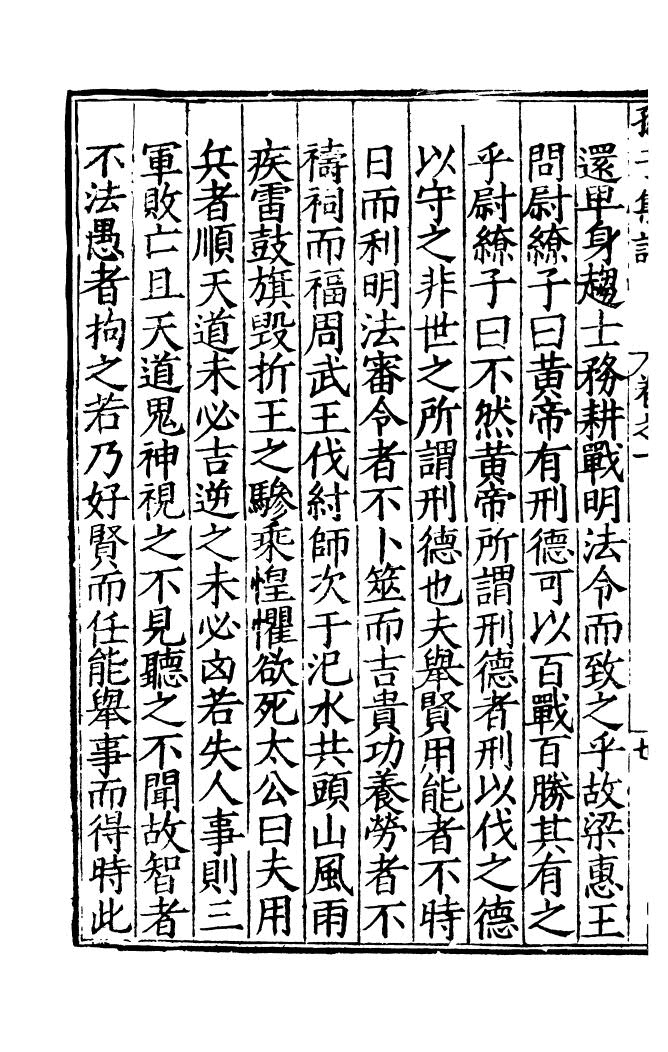 還卑身趨士務耕戰明法令而致之乎故梁惠王
問尉繚子曰黃帝有刑德可以百戰百勝其有之
乎尉繚子曰不然黃帝所謂刑德者刑以伐之德
以守之非世之所謂刑德也夫舉賢用能者不時
日而利明法審令者不卜筮而吉貴功養勞者不
禱祠而福周武王伐紂師次于汜水共頭山風雨
疾雷鼓旗毀折王之驂乘惶懼欲死太公曰夫用
兵者順天道未必吉逆之未必凶若失人事則三
軍敗亡且天道鬼神視之不見聽之不聞故智者
不法愚者拘之若乃好賢而任能舉事而得時此